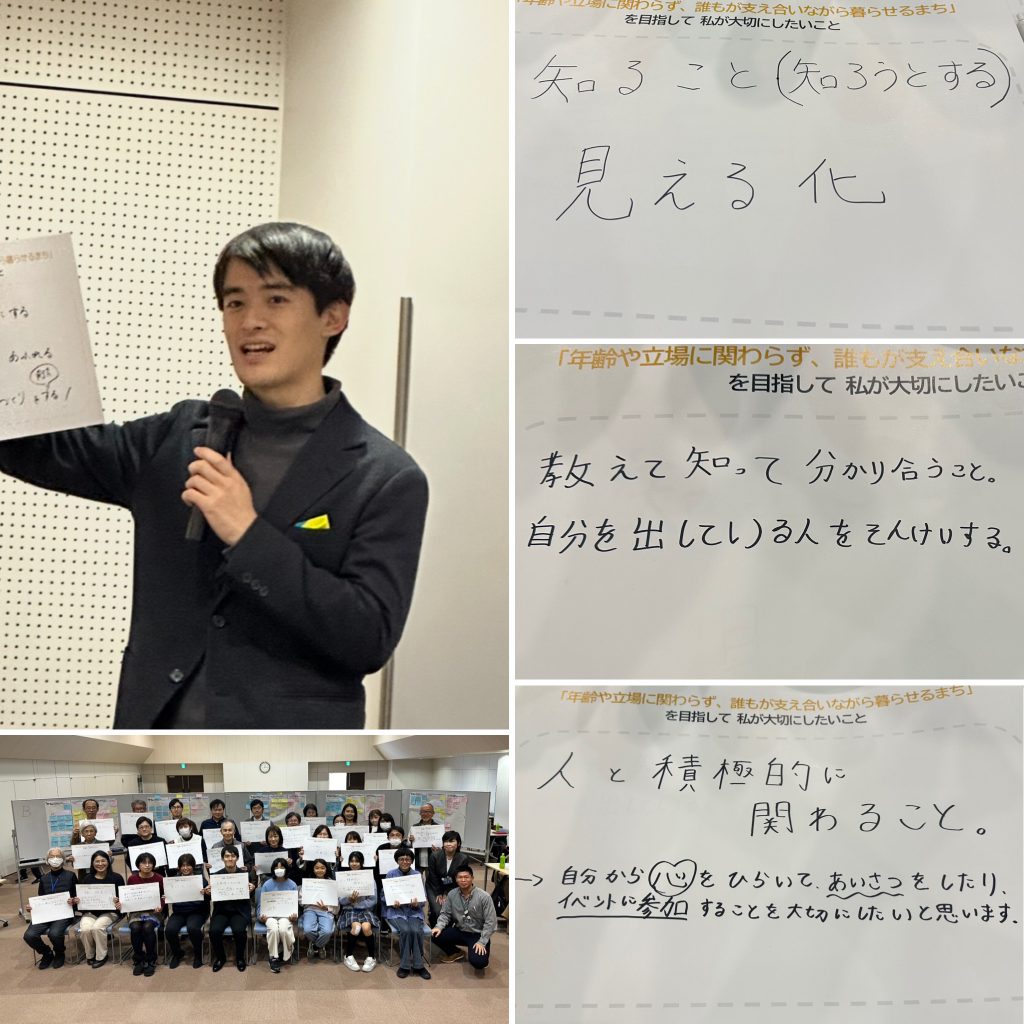 ら暮らせるまち」
と
にする
あふれる
づくりをする!
「年齢や立場に関わらず、誰もが支え合いながら暮らせるまち」
を目指して 私が大切にしたいこと
知ること(知ろうとする)
見える化
「年齢や立場に関わらず、誰もが支え合いな
を目指して 私が大切にしたいこ
教えて知って分かり合うこと。
自分を出している人をそんけいする。
「年齢や立場に関わらず、誰もが支え合いながら暮らせるまち」
を目指して 私が大切にしたいこと
人と積極的に
関わること。
→自分から心をひらいて、あいさつをしたり、
イベントに参加することを大切にしたいと思います。
B